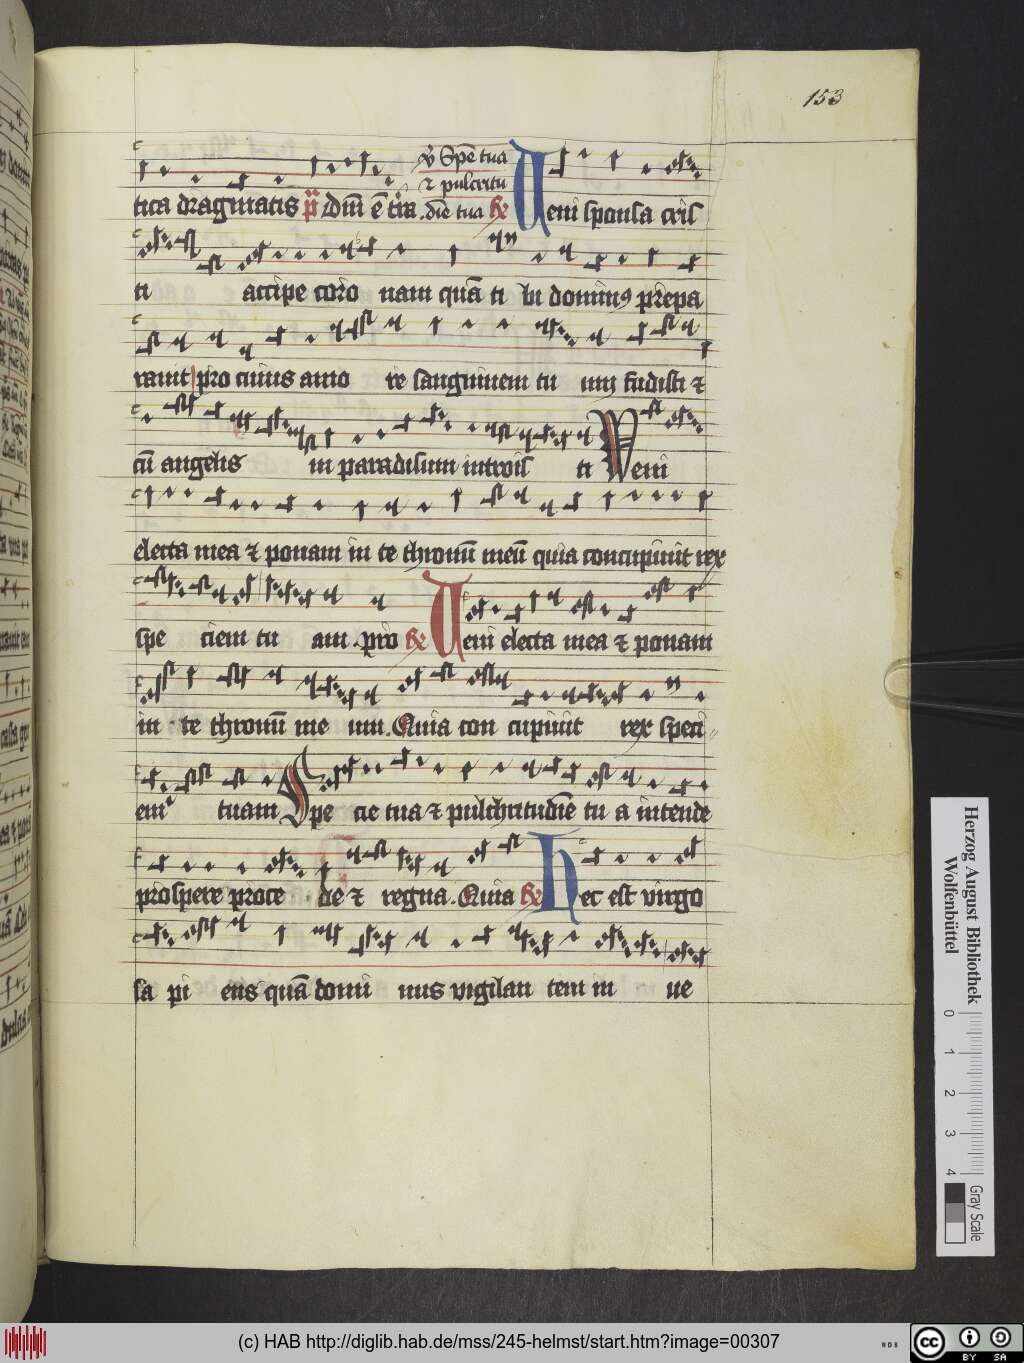 153
V Spē tua
⁊ pulcritu
tica dragmatis p̄ Dn̄i ē tr̄a .dīe tua R Ueni sponsa cris
ti accipe coro nam quā ti bi dominꝰ prepa
rauit pro cuius amo re sanguinem tu um fudisti ⁊
cū angelis in paradisum introis ti Veni
electa mea ⁊ ponam in te thronū meū quia concupiuit rex
spe ciem tu am .pro R Ueni electa mea ⁊ ponam
in te thronū me um .Quia con cupiuit rex speci
em tuam Spe cie tua ⁊ pulchritudīe tu a intende
prospere proce de ⁊ regna .Quia R Hec est virgo
sa pi ens quā domi nus vigilan tem in ue
Herzog August Bibliothek
Wolfenbüttel
0 1 2 3 4
Gray Scale
(c) HAB http://diglib.hab.de/mss/245-helmst/start.htm?image=00307
WDB
cc BY SA